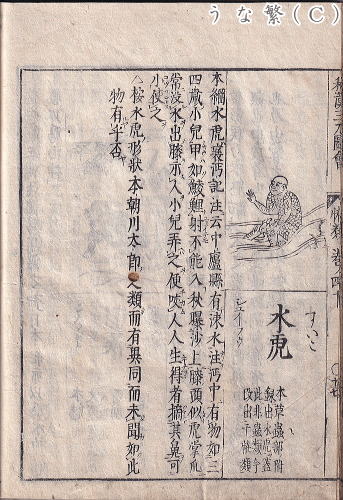 うな繁(C)
水虎
すいこ
シュイフウ
本草蟲部附
録出水虎蓋
此非蟲類今
改出于此類
本綱水虎襄沔記注云中廬縣有涑水注沔中有物如三
四歳小兒甲如鯪鯉射不能入秋曝沙上膝頭似虎掌爪
常没水出膝示人小兒弄之便咬人人生得者摘其鼻可
小使之
△按水虎形狀本朝川太郎之類而有異同而未聞如此
物有乎否